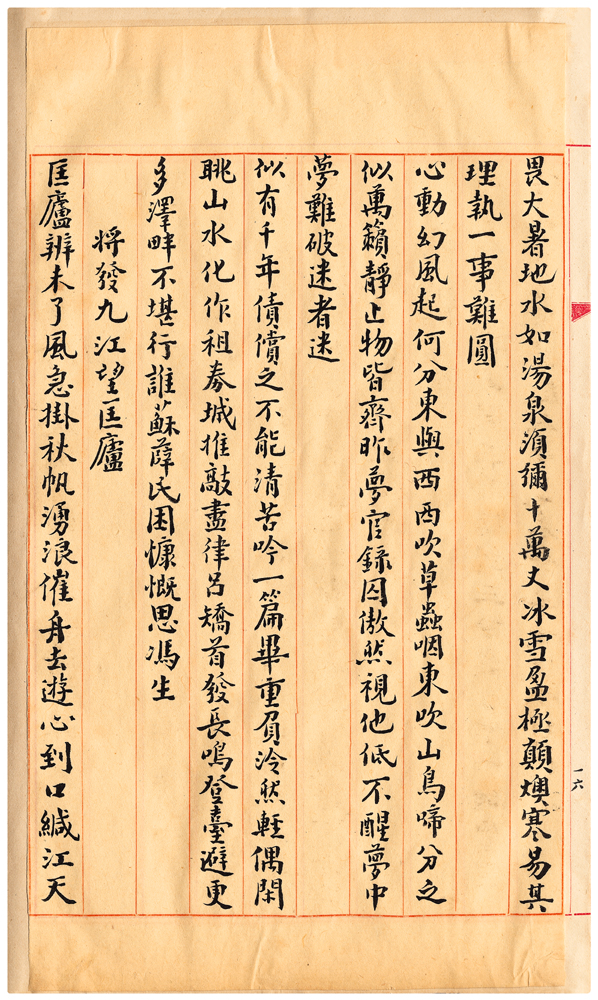 畏大暑地水如湯泉須彌十萬丈冰雪盈極顛燠寒易其
理執一事難圓
心動幻風起何分東與西西吹草蟲咽東吹山鳥啼分之
似萬籟靜止物皆齊昨夢官錄囚傲然視他低不醒夢中
夢難破迷者迷
似有千年債償之不能清苦吟一篇畢重負泠然輕偶閑
眺山水化作祖秦城推敲盡律呂矯首發長鳴登臺避更
多澤畔不堪行誰蘇薛民困慷慨思馮生
將發九江望匡廬
匡廬辨未了風急掛秋帆湧浪催舟去遊心到口緘江天
一六